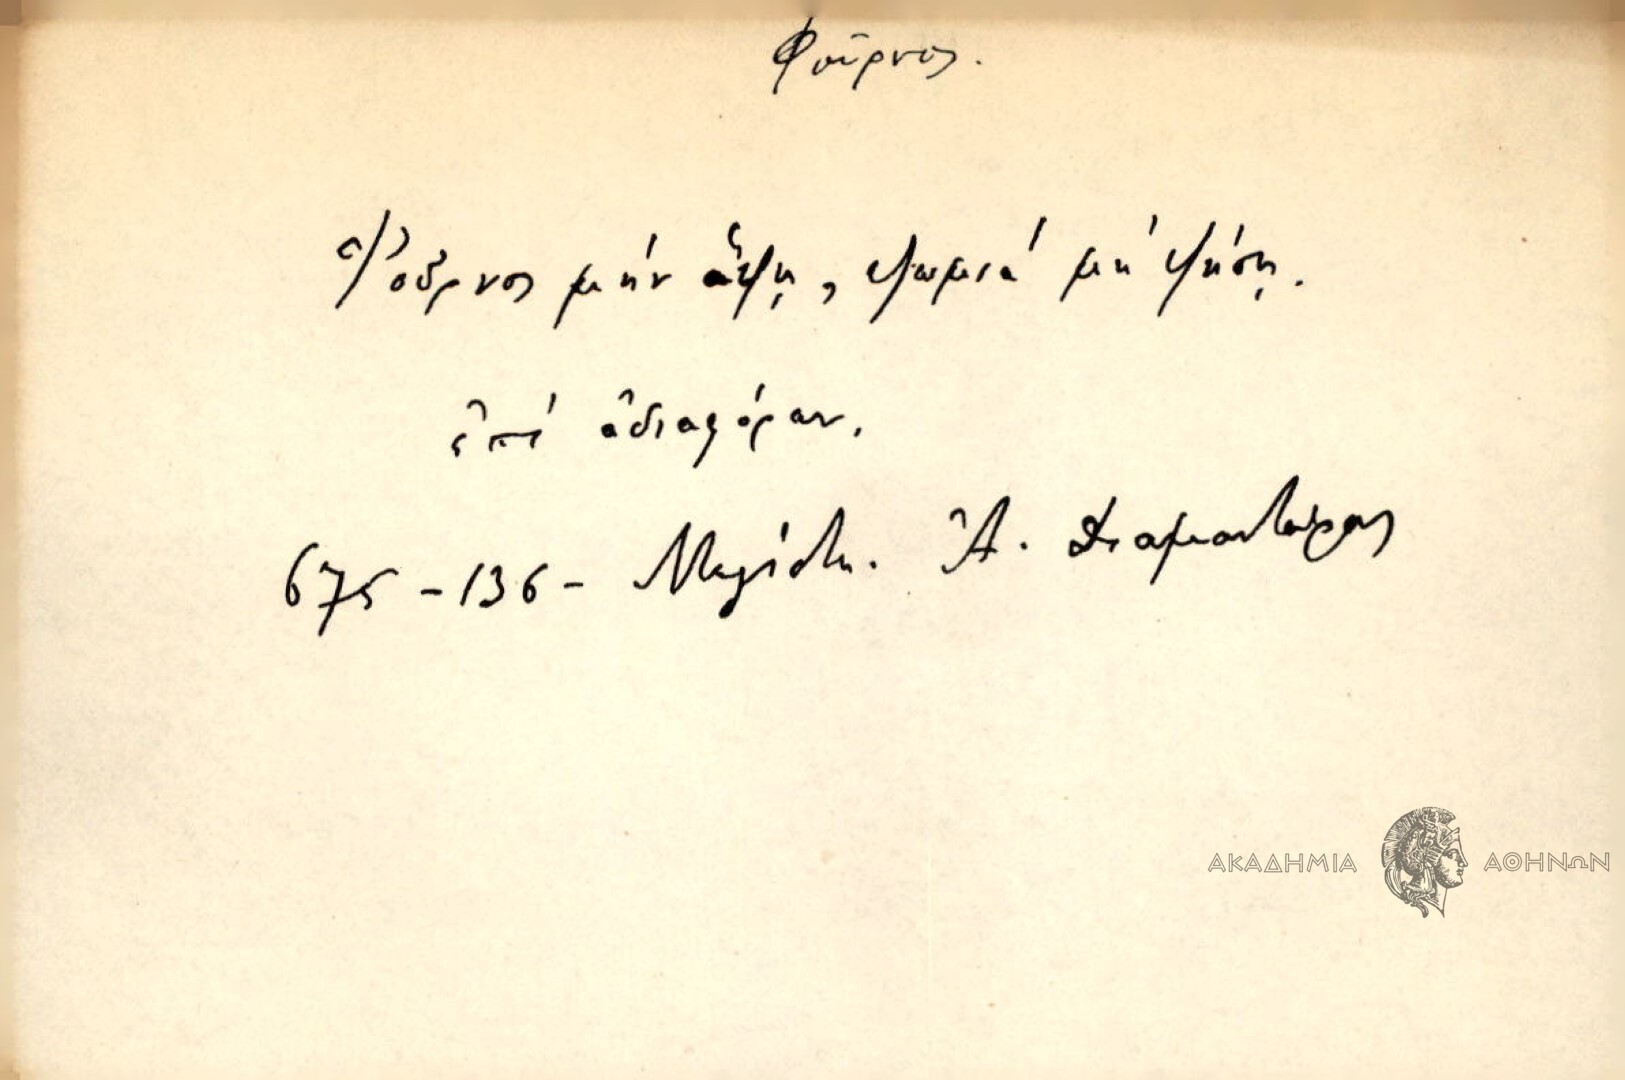 Φοῦρνος.
Φοῦρνος μήν ἅψῃ, ψωμιά μή ψήσῃ.
ἐπί ἀδιαφόραν.
675 - 136 - Μεγίστη. Ἀ. Διαμαντάρας
ΑΚΑΔΗΜΙΑ ΑΘΗΝΩΝ